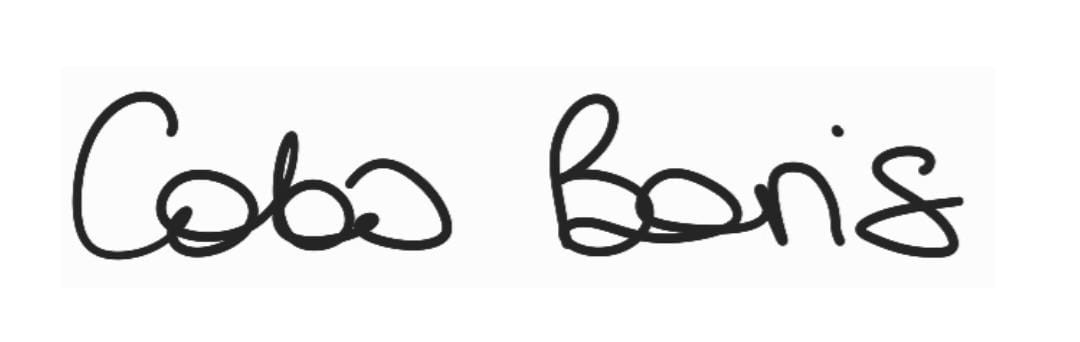 Coba Boris